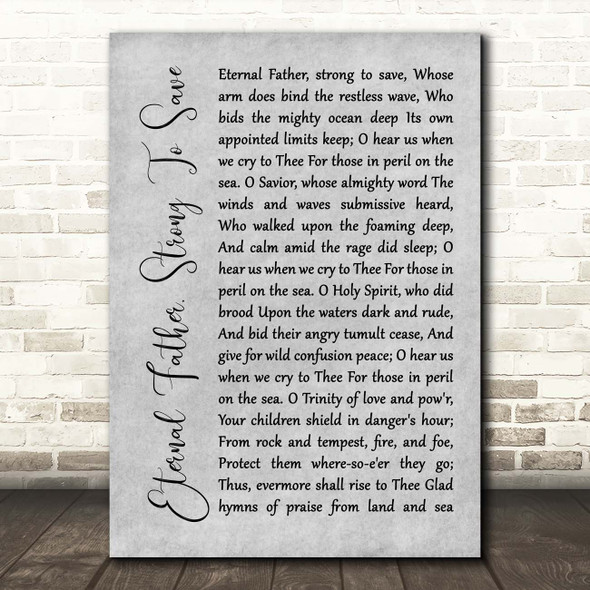 Eternal Father, Strong To Save
Eternal Father, strong to save, Whose
arm does bind the restless wave, Who
bids the mighty ocean deep Its own
appointed limits keep; O hear us when
we cry to Thee For those in peril on the
sea. O Savior, whose almighty word The
winds and waves submissive heard,
Who walked upon the foaming deep,
And calm amid the rage did sleep; O
hear us when we cry to Thee For those in
peril on the sea. O Holy Spirit, who did
brood Upon the waters dark and rude,
And bid their angry tumult cease, And
give for wild confusion peace; O hear us
when we cry to Thee For those in peril
on the sea. O Trinity of love and pow'r,
Your children shield in danger's hour;
From rock and tempest, fire, and foe,
Protect them where-so-e'er they go;
Thus, evermore shall rise to Thee Glad
hymns of praise from land and sea